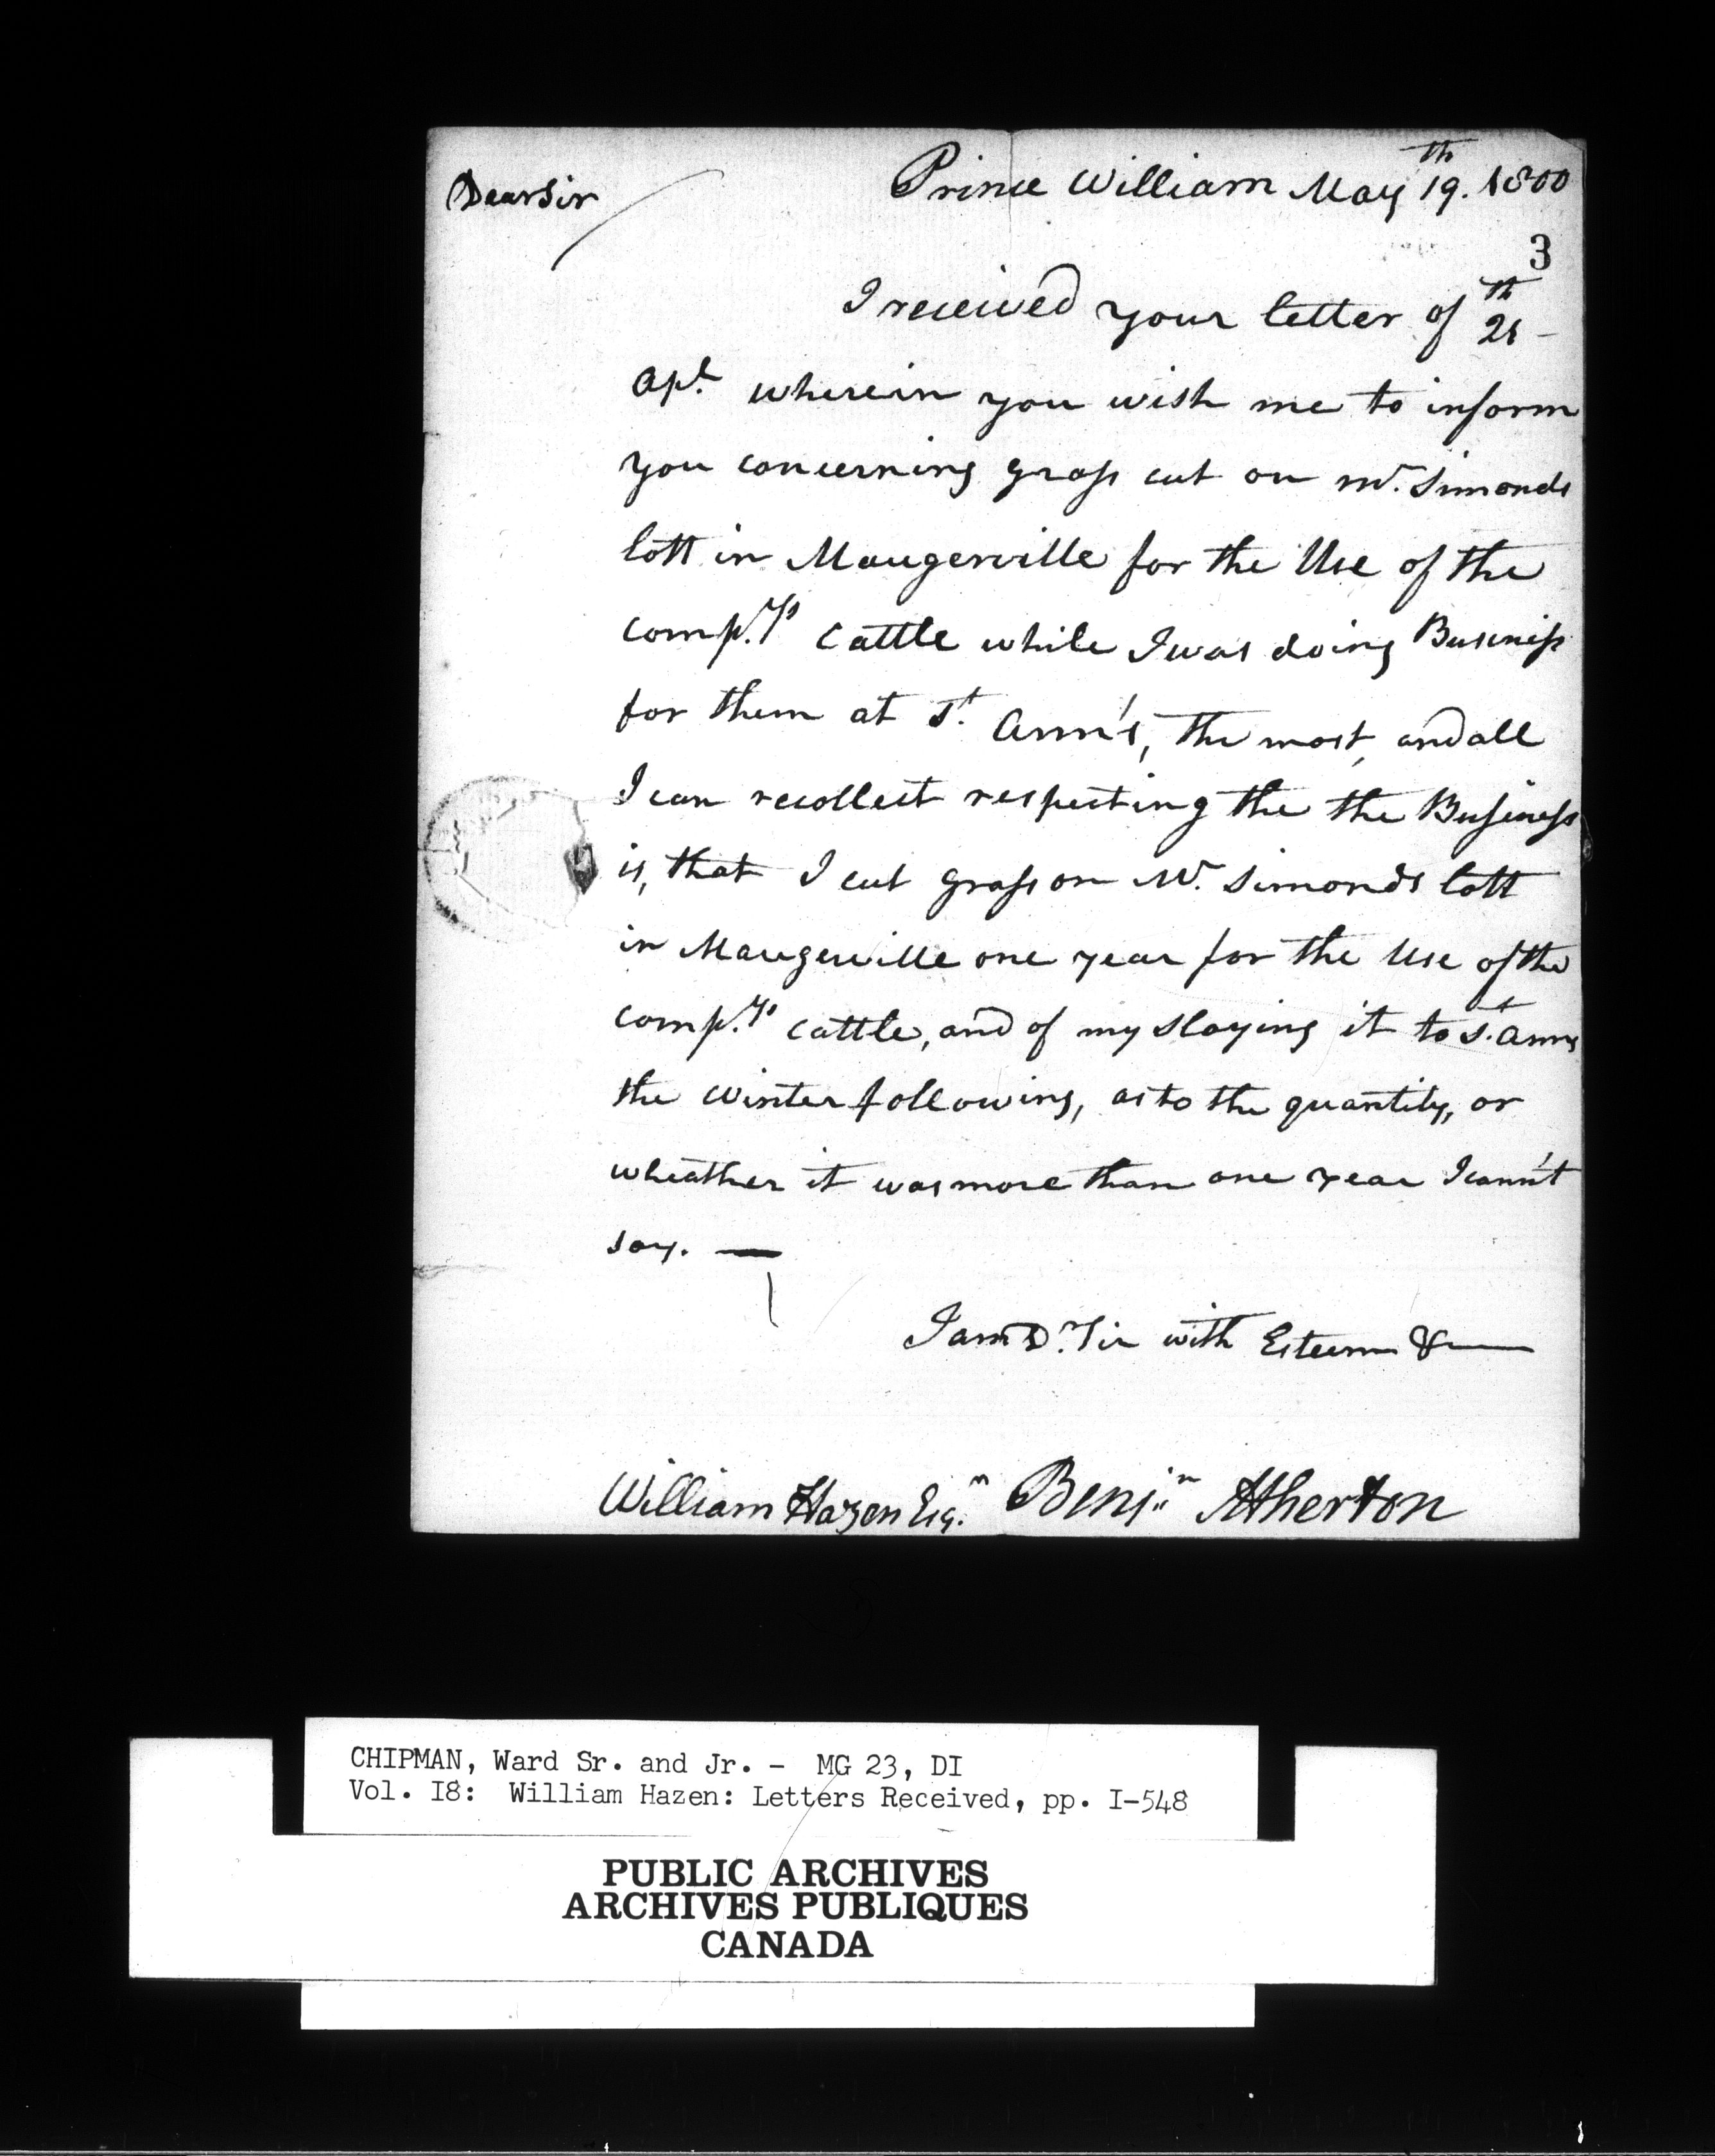 Dear Sir
Prince William May 19.th 1800
3
I received your letter of 21th
Apl. wherein you wish me to inform
you concerning grass cut on Mr. Simonds
lott in Maugerville for the Use of the
comp.ys Cattle while I was doing Business
for them at St. Ann's, the most, and all
I can recollect respecting the the Business
is, that I cut grass on Mr. Simonds lott
in Maugerville one year for the Use of the
comp.ys cattle, and of my slaying it to St. Anns
the winter following, as to the quantity, or
wheather it was more than one year I cann't
say. —
I am Dr. Sir with Esteem &
William Hazen Esqr. Benjin Atherton
CHIPMAN, Ward Sr. and Jr. - MG 23, DI
Vol. I8: William Hazen: Letters Received, pp. I-548
PUBLIC ARCHIVES
ARCHIVES PUBLIQUES
CANADA